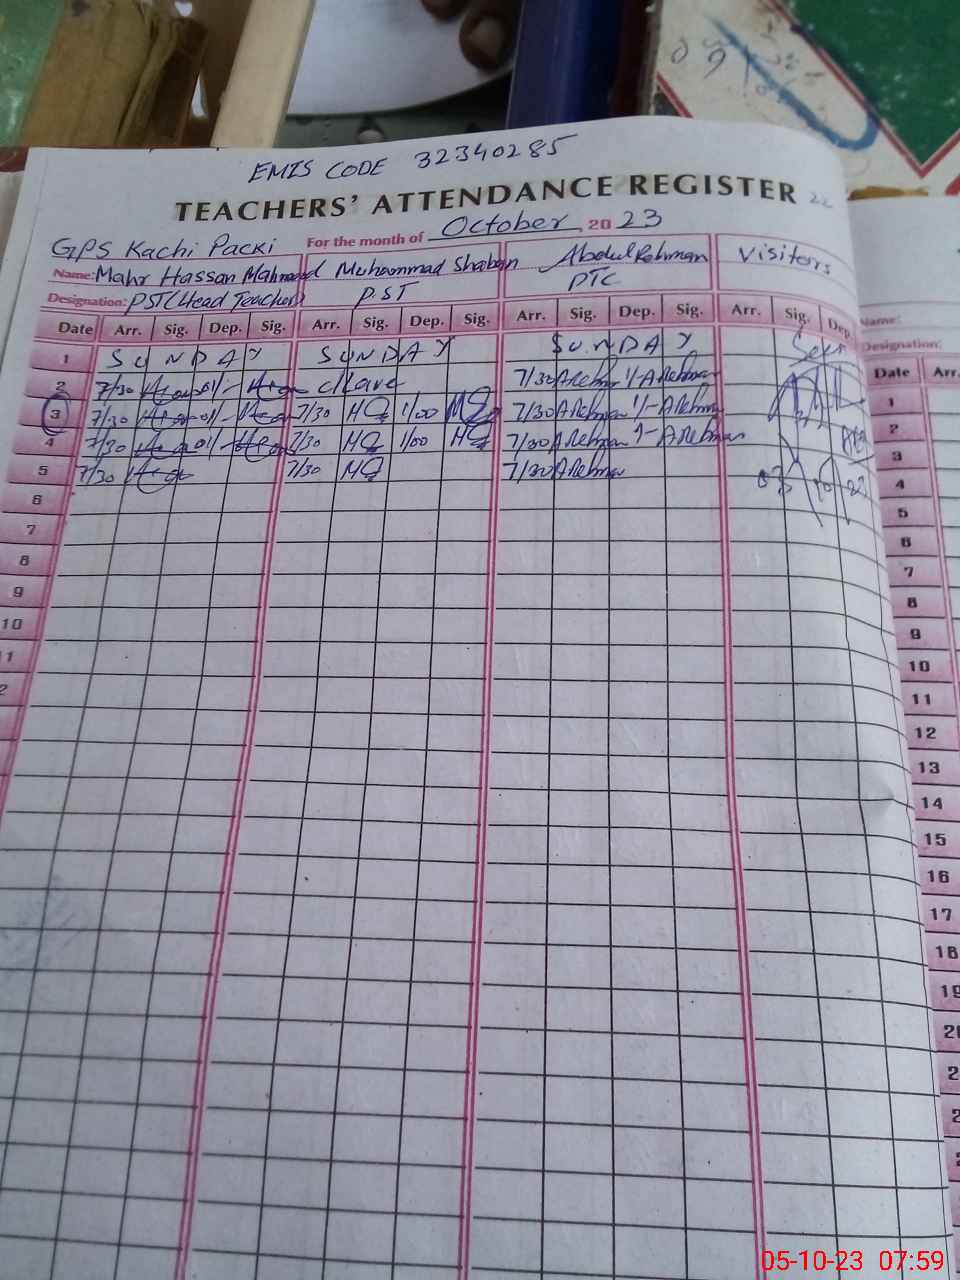 EMIS CODE 32340285
TEACHERS' ATTENDANCE REGISTER 22
GPS Kachi Packi For the month of October, 2023
Name: Mahr Hassan Mahmood Muhammad Shaban Abdul Rehman Visitors
Designation: PST (Head Teacher) P.ST PTC
Date Arr. Sig. Dep. Sig. Arr. Sig. Dep. Sig. Arr. Sig. Dep. Sig. Arr. Sig. Dep.
1 SUNDAY SUNDAY SUNDAY Seen
2 7/30 c/Leave 7/30 ARehman 1/- ARehman
3 7/30 7/30 MS 1/00 MS 7/30 ARehman 1/- ARehman
4 7/30 7/30 MS 1/00 MS 7/30 ARehman 1/- ARehman
5 7/30 7/30 MS 7/30 ARehman
6
7
8
9
10
11
2
Name:
Designation:
Date Arr.
1
2
3
4
5
6
7
8
9
10
11
12
13
14
15
16
17
18
19
05-10-23 07:59